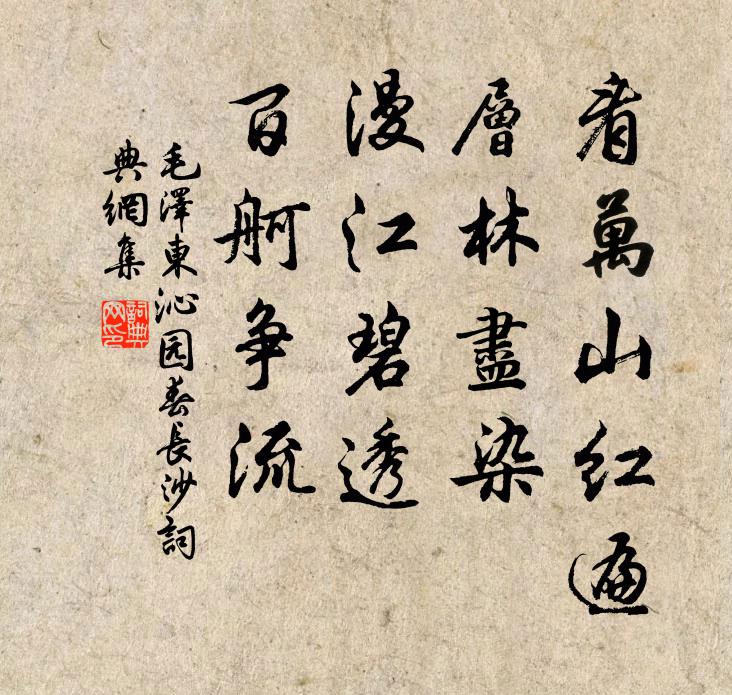 看萬山红遍
層林盡染
漫江碧透
百舸争流
毛澤東沁园春長沙詞
典網集
詞典
网印